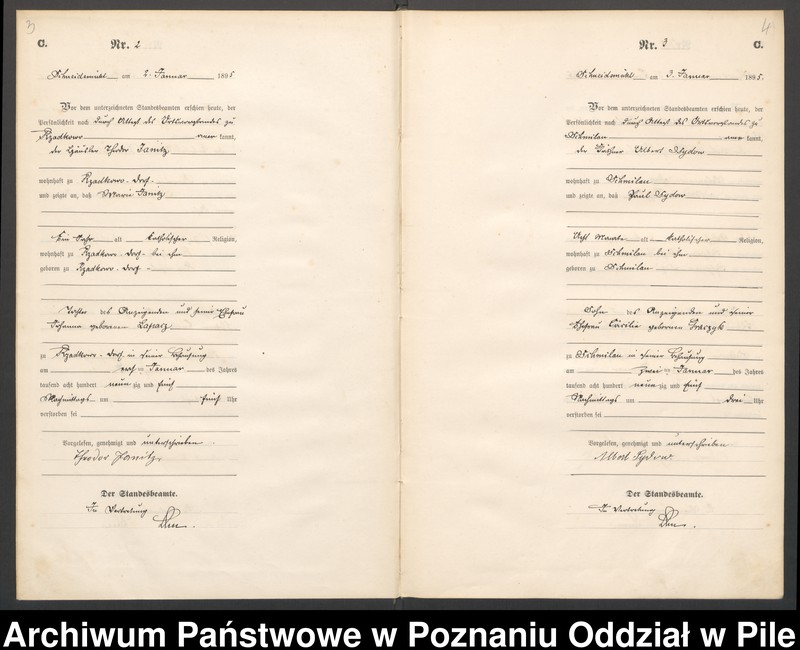 3
C.
Nr. 2
Schneidemühl am 2. Januar 1895
Vor dem unterzeichneten Standesbeamten erschien heute, der
Persönlichkeit nach durch Attest des Ortsvorstandes zu
Rzadkowo kannt,
der Häusler Theodor Janitz
wohnhaft zu Rzadkowo-Dorf
und zeigte an, daß Maria Janitz
Ein Jahr alt katholischer Religion,
wohnhaft zu Rzadkowo-Dorf bei ihm
geboren zu Rzadkowo-Dorf
Tochter des Anzeigenden und seiner Ehefrau
Johanna geborenen
zu Rzadkowo-Dorf in seiner Behausung
am Januar des Jahres
tausend acht hundert neunzig und fünf
Nachmittags um fünf Uhr
verstorben sei
Vorgelesen, genehmigt und unterschrieben
Theodor Janitz
Der Standesbeamte.
In Vertretung
4
Nr. 3
C.
Schneidemühl am 3. Januar 1895.
Vor dem unterzeichneten Standesbeamten erschien heute, der
Persönlichkeit nach durch Attest des Ortsvorstandes zu
Schmilau kannt,
der Albert Sydow
wohnhaft zu Schmilau
und zeigte an, daß Paul Sydow
Acht Monate alt katholischer Religion,
wohnhaft zu Schmilau bei ihm
geboren zu Schmilau
Sohn des Anzeigenden und seiner
Ehefrau Cäcilie geborenen
zu Schmilau in seiner Behausung
am zwei ten Januar des Jahres
tausend acht hundert neunzig und fünf
Nachmittags um drei Uhr
verstorben sei
Vorgelesen, genehmigt und unterschrieben
Albert Sydow
Der Standesbeamte.
In Vertretung
Archiwum Państwowe w Poznaniu Oddział w Pile